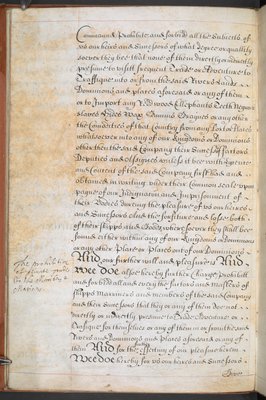 Command Prohibite and forbid all the Subiects of
us our heires and Successors of what degree or quallity
soever they bee that none of them directly or indirectly
presume to visitt frequent Trade or Adventure to
Traffique into or from the said
Dominions and places aforesaid or any of them
or to Import any Redwood Elephants Teeth Negroe
Slaves Hides Wax Gumms Graynes or any other
the Comodities of that Country from any Port or Haven
whatsoever into any of our Kingdomes or Dominions
other then the said Company their Successors Factors
Deputies and Assignes unless it bee with
consent of the said Company first had and
obtained in writing under their Common Seale upon
paine of our Indignation and Imprisonment of
their Bodies during the pleasure of us our heires
and Successors and the forfeiture and losse both
of their Shipps and Goods wheresoever they shall bee
found either within any of our Kingdomes or Dominions
or any other Place or Places out of our Dominions
And our further will and pleasure is And
Wee doe alsoe hereby further Charge Prohibit
and forbid all and every the factors and Masters of
Shipps Marriners and members of the said Company
and their Successors that they or any of them doe not
directly or indirectly presume to Trade Adventure or
Trafique for themselves or any of them in or from the said
Rivers and Dominions and Places aforesaid or any of
them And for the effecting of our pleasure herein
Wee doe hereby for us our heires and Successors
The prohibition